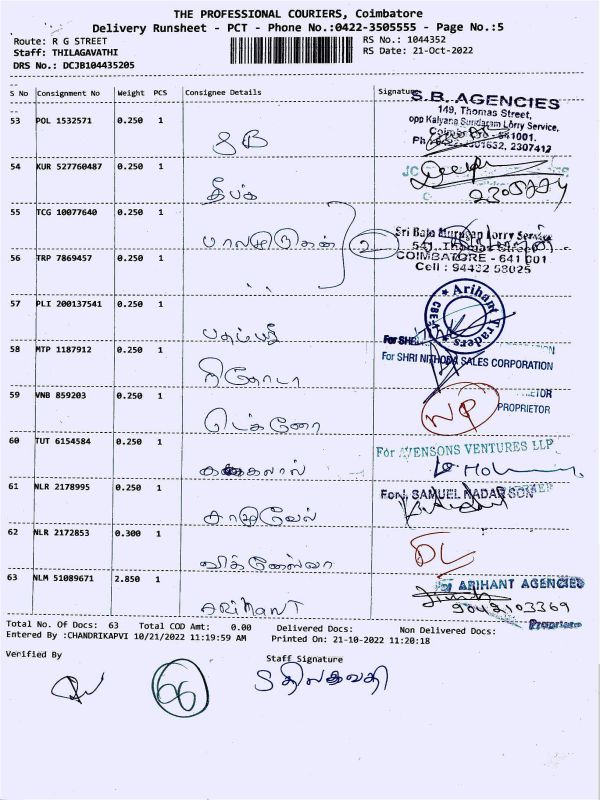 THE PROFESSIONAL COURIERS, Coimbatore
Delivery Runsheet - PCT - Phone No.:0422-3505555 - Page No.:5
Route: R G STREET
RS No.: 1044352
Staff: THILAGAVATHI
RS Date: 21-Oct-2022
DRS No.: DCJB104435205
S No Consignment No Weight PCS Consignee Details Signature
53 POL 1532571 0.250 1
SB
S.B. AGENCIES
149, Thomas Street,
opp Kalyana Sundaram Lorry Service,
54 KUR 527760487 0.250 1
தீபக்
55 TCG 10077640 0.250 1
பாலமுருகன் 2
Sri Bala Murugan Lorry Service
56 TRP 7869457 0.250 1
COIMBATORE - 641 001
Cell : 94432 58025
57 PLI 200137541 0.250 1
Arihant Traders
CBE-1
58 MTP 1187912 0.250 1
நிதோடா
For SHRI NITHODA SALES CORPORATION
59 VNB 859203 0.250 1
டெக்னோ
NP
PROPRIETOR
60 TUT 6154584 0.250 1
For AVENSONS VENTURES LLP
61 NLR 2178995 0.250 1
சாமுவேல்
For J. SAMUEL NADAR SON
62 NLR 2172853 0.300 1
DL
63 NLM 51089671 2.850 1
ARIHANT
For ARIHANT AGENCIES
9042103369
Proprietor
Total No. Of Docs: 63 Total COD Amt: 0.00 Delivered Docs: Non Delivered Docs:
Entered By :CHANDRIKAPVI 10/21/2022 11:19:59 AM Printed On: 21-10-2022 11:20:18
Verified By
Staff Signature
66
S திலகவதி